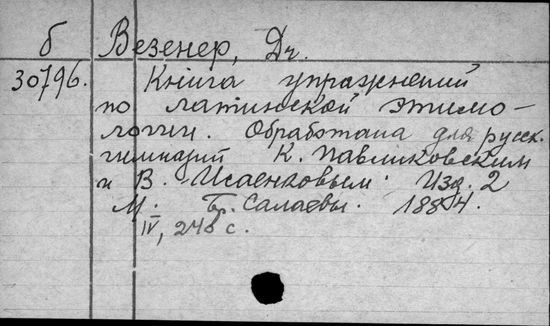 б Везенер, Dr.
30796. Книга упражнений
по латинской этимо-
логии. Обработана для русск.
гимназий К. Павликовским
и В. Исаенковым. Изд. 2
М. Бр. Салаевы. 1884.
IV, 246 с.